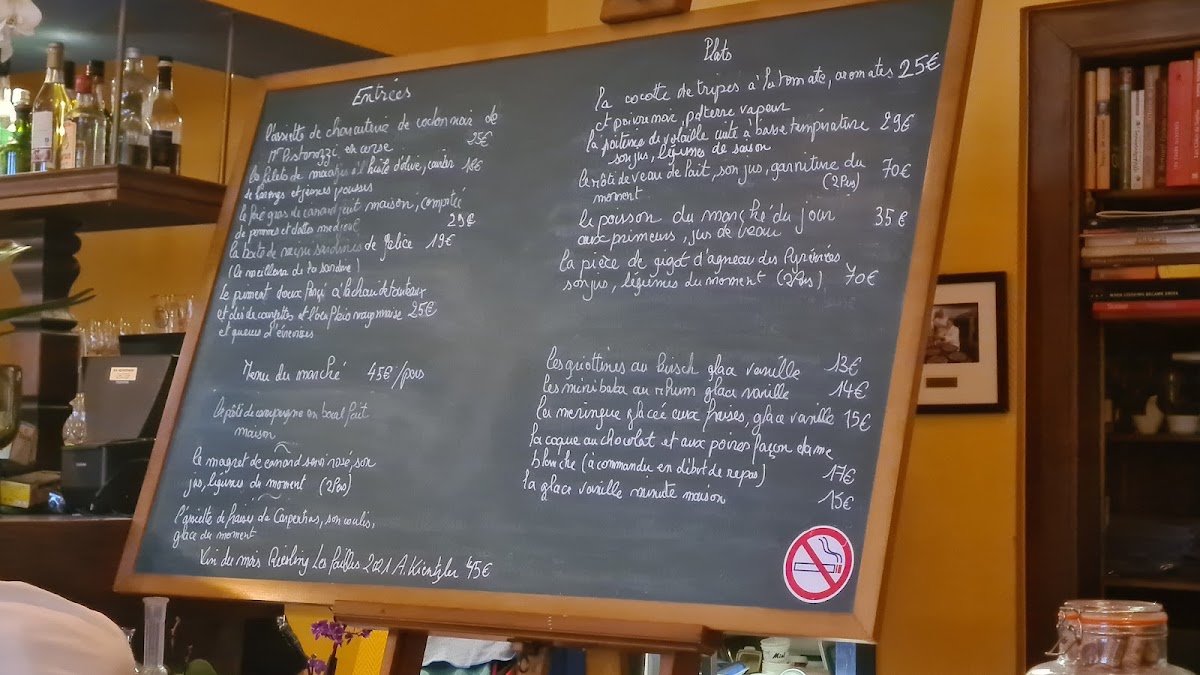 Entrées
l'assiette de charcuterie de cochon noir de
Mr Pistorozzi en corse 25€
le filets de maatjes à l'huile d'olive, caviar 18€
de harengs et jeunes pousses
le foie gras de canard cuit maison, compotée
de pommes et dattes medjool 29€
la boîte de sardines de Belice 19€
(la meilleure de la sardine)
Le piment doux farçi à la chair de tourteaux
et dés de courgettes et mayonnaise 25€
et queues d'écrevisses
Menu du marché 45€/pers
le pâté de campagne en bocal fait
maison
~
le magret de canard servi rosé, son
jus, légumes du moment (2Pers)
~
l'assiette de fraises de Carpentras, son coulis,
glace du moment
Vin du mois Riesling Les Faîtières 2021 A. Kientzler 45€
Plats
la cocotte de tripes à la tomate, aromates 25€
et poivre noir, p. de terre vapeur
la poitrine de volaille cuite à basse température 29€
son jus, légumes de saison
le rôti de veau de lait, son jus, garniture du 70€
moment (2Pers)
le poisson du marché du jour 35€
aux primeurs, jus de veau
la pièce de gigot d'agneau des Pyrénées
son jus, légumes du moment (2Pers) 70€
les griottines au kirsch glace vanille 13€
les mini baba au rhum glace vanille 14€
la meringue glacée aux fraises, glace vanille 15€
la coque au chocolat et aux poires façon dame
blanche (à commander en début de repas) 17€
la glace vanille minute maison 15€